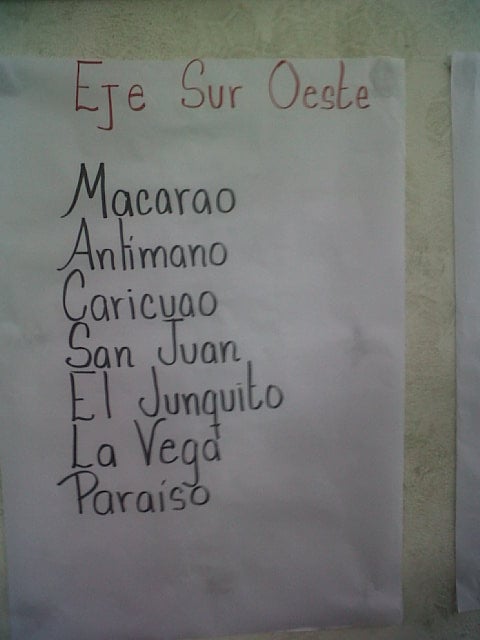 Eje Sur Oeste
Macarao
Antimano
Caricuao
San Juan
El Junquito
La Vega
Paraiso